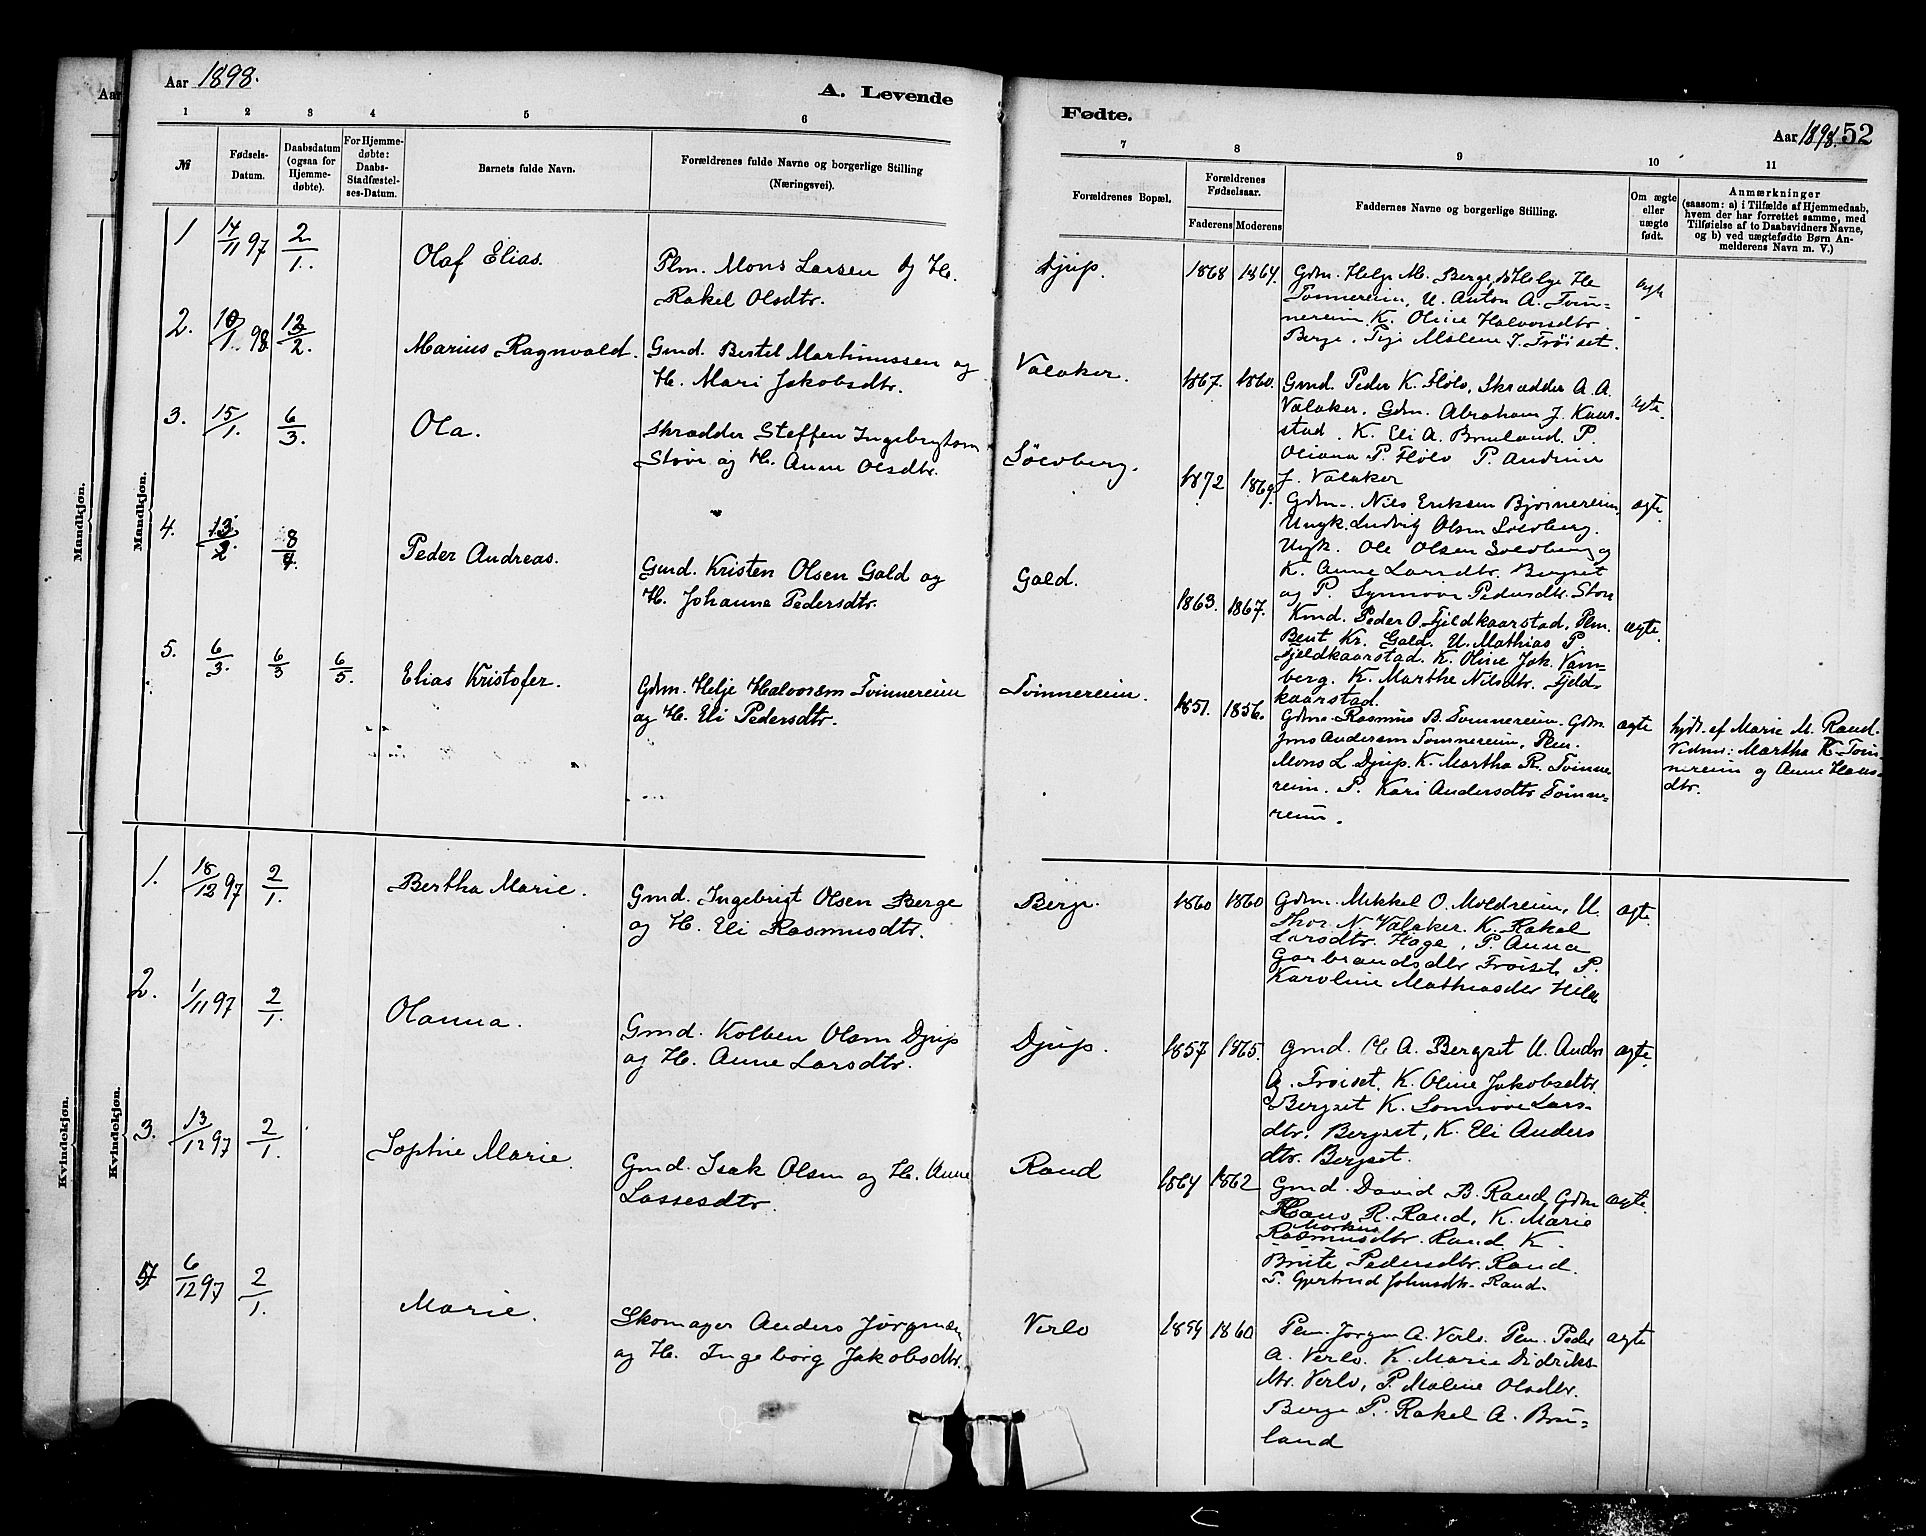 Aar 1898.
A. Levende
Fødte.
Aar 1898. 52
1 2 3 4 5 6 7 8 9 10 11
№
Fødsels-
Datum.
Daabsdatum
(ogsaa for
Hjemme-
døbte).
For Hjemme-
døbte:
Daabs-
Stadfæstel-
ses-Datum.
Barnets fulde Navn.
Forældrenes fulde Navne og borgerlige Stilling
(Næringsvei).
Forældrenes Bopæl.
Forældrenes
Fødselsaar.
Faderens Moderens
Faddernes Navne og borgerlige Stilling.
Om ægte
eller
uægte
født.
Anmærkninger
(saasom: a) i Tilfælde af Hjemmedaab,
hvem der har forrettet samme, med
Tilføielse af to Daabsvidners Navne,
og b) ved uægtefødte Børn An-
melderens Navn m. V.)
Mandkjøn.
Mandkjøn.
1 14/11 97 2/1. Olaf Elias.
Plm. Mons Larsen og H.
Rakel Olsdtr.
Djup. 1868 1864.
Gdm. Helge M. Berge, Helge He
Tvinnereim, U. Anton A. Tvin-
nereim K. Oline Halvorsdtr.
Berge. Pige Malene J. Frøiset.
ægte
2. 10/1 98 13/2. Marius Ragnvald.
Gmd. Bertel Martinussen og
H. Mari Jakobsdtr.
Valaker. 1867. 1860.
Gmd. Peder K. Flølo, Skrædder A. A.
Valaker. Gdm. Abraham J. Kaar-
stad. K. Eli A. Bruland. P.
Oliana P. Flølo P. Andrine
J. Valaker
ægte.
3. 15/1. 6/3. Ola.
Skrædder Steffen Ingebrigtsen
Støve og H. Anne Olsdtr.
Solvberg. 1872 1869.
Gdm. Nils Eriksen Bjørnereim,
Ungk. Ludvig Olsen Solvberg.
Ungk. Ole Olsen Solvberg og
K. Anne Larsdtr. Bergset
og P. Synnøve Pedersdtr. Støve
ægte.
4. 13/2. 8/4. Peder Andreas.
Gmd. Kristen Olsen Gald og
H. Johanne Pedersdtr.
Gald. 1863. 1867.
Kmd. Peder O. Fjeldkaarstad, Plm.
Bent Kr. Gald. U. Mathias P.
Fjeldkaarstad. K. Oline Jak. Vam-
berg. K. Marthe Nilsdtr. Fjeld-
kaarstad.
ægte.
5. 6/3. 6/3 6/5. Elias Kristofer.
Gdm. Helje Halvorsen Tvinnereim
og H. Eli Pedersdtr.
Tvinnereim. 1851. 1856.
Gdm. Rasmus B. Tvinnereim. Gdm.
Jens Andersen Tvinnereim, Plm.
Mons L. Djup. K. Martha R. Tvinne-
reim. P. Kari Andersdtr Tvinne-
reim.
ægte
hjdt. af Marie M. Rand.
Vidner: Martha K. Tvin-
nereim og Anne Hans-
dtr.
Kvindekjøn.
Kvindekjøn.
1. 18/12 97 2/1. Bertha Marie.
Gmd. Ingebrigt Olsen Berge
og H. Eli Rasmusdtr.
Berge. 1860 1860
Gdm. Mikkel O. Moldreim, U.
Thor. N. Valaker. K. Rakel
Larsdtr. Hage, P. Anna
Garbrandsdtr Frøiset P.
Karoline Mathiasdtr Hilde
ægte.
2. 1/11 97 2/1. Olanna.
Gmd. Kolben Olsen Djup
og H. Anne Larsdtr.
Djup. 1857 1865.
Gmd. H A. Bergset U. Andr.
A. Frøiset. K. Oline Jakobsdtr.
Bergset K. Sønnøve Lars-
dtr. Bergset, K. Eli Anders
dtr. Bergset.
ægte.
3. 13/12 97 2/1. Sophie Marie.
Gmd. Isak Olsen og H. Anne
Lassesdtr.
Rand 1864 1862
Gmd. David B. Rand, Gdm
Hans R. Rand, K. Marie
Markus
Rasmusdtr. Rand K.
Brite Pedersdtr. Rand.
P. Gjertrud Johnsdtr. Rand.
ægte.
6/12 97 2/1. Marie.
Skomager Anders Jørgensen
og H. Ingeborg Jakobsdtr.
Verlo 1854 1860
Plm. Jørgen A. Verlo. Plm. Peder
A. Verlo. K. Marie Didriks-
dtr. Verlo, P. Malene Olsdtr.
Berge P. Rakel A. Bru-
land
ægte